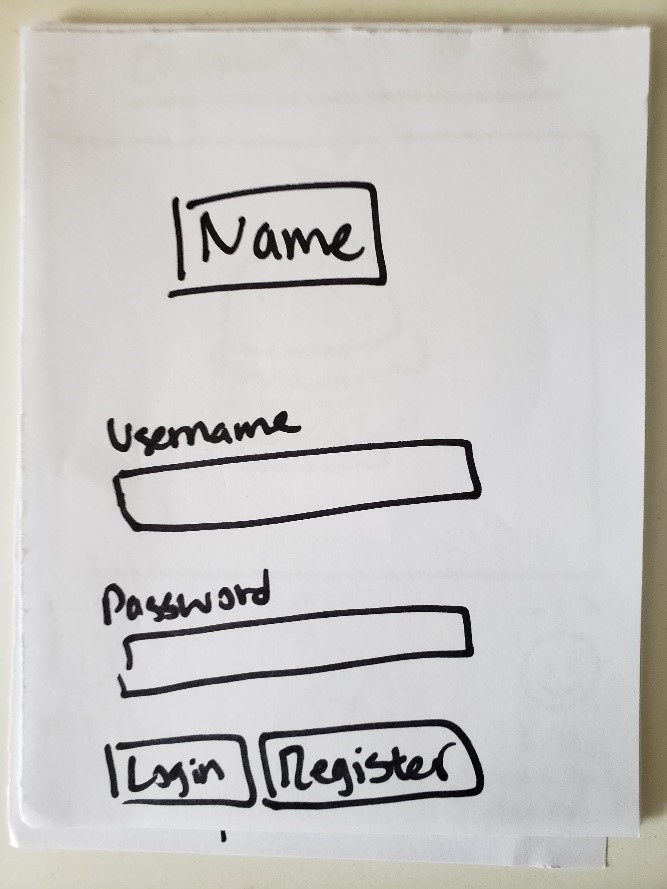 Name
Username
Password
Login Register